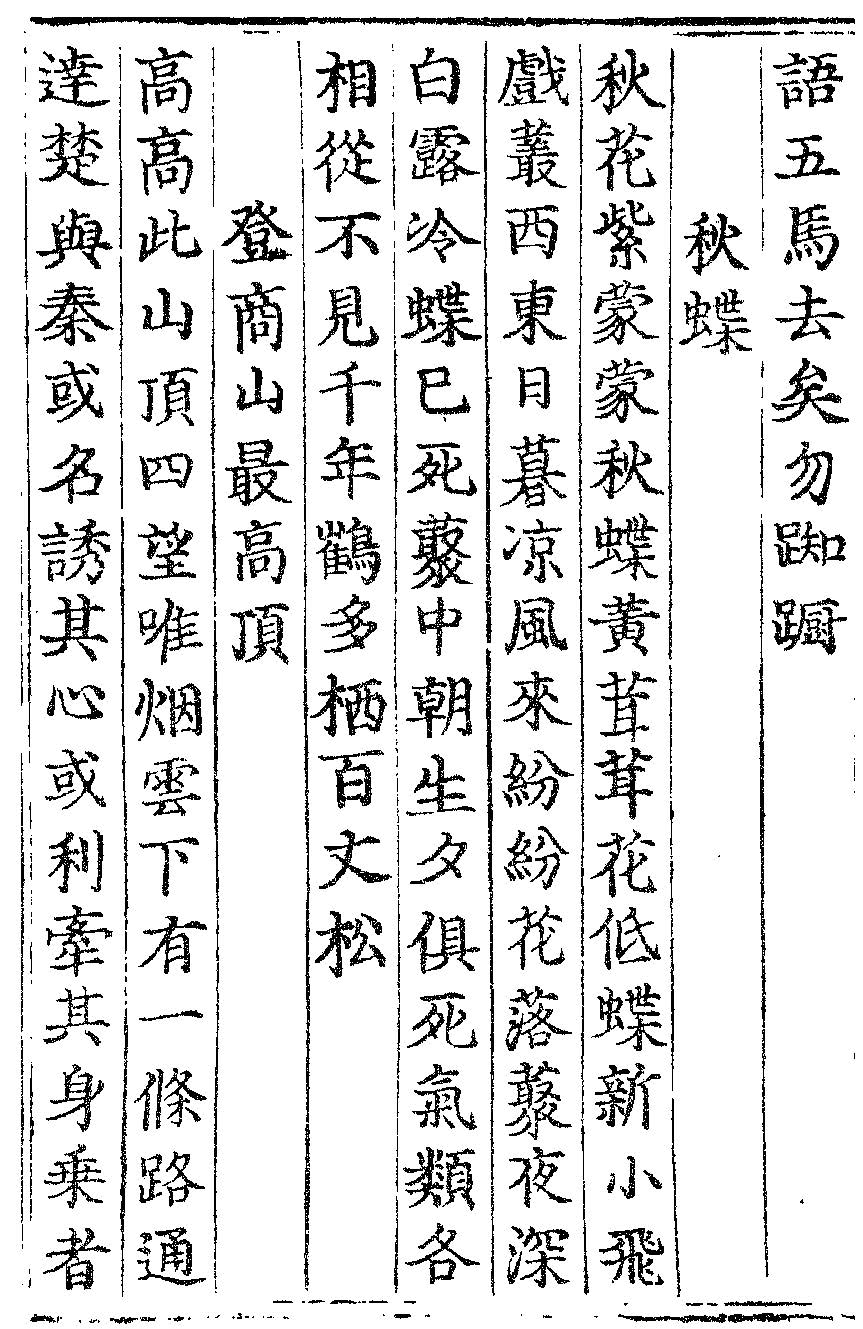 語五馬去矣勿踟蹰
秋蝶
秋花紫蒙蒙秋蝶黃茸茸花低蝶新小飛
戲叢西東日暮凉風來紛紛花落藂夜深
白露冷蝶已死藂中朝生夕俱死氣類各
相從不見千年鶴多栖百丈松
登商山最高頂
高高此山頂四望唯烟雲下有一條路通
達楚與秦或名誘其心或利牽其身乗者